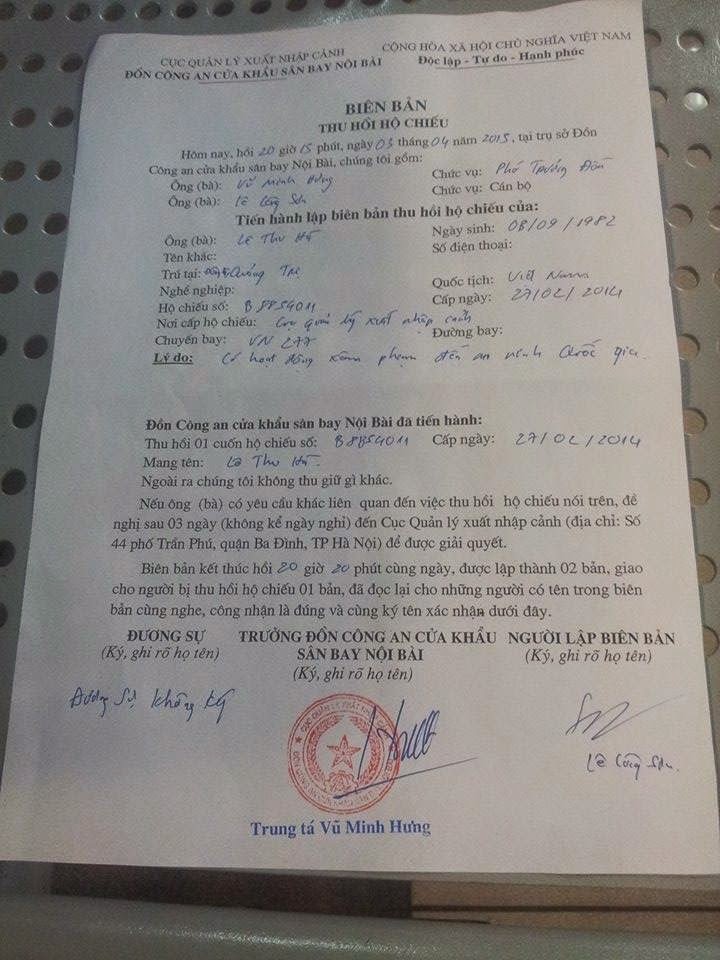 CỤC QUẢN LÝ XUẤT NHẬP CẢNH
ĐỒN CÔNG AN CỬA KHẨU SÂN BAY NỘI BÀI
CỘNG HÒA XÃ HỘI CHỦ NGHĨA VIỆT NAM
Độc lập - Tự do - Hạnh phúc
BIÊN BẢN
THU HỒI HỘ CHIẾU
Hôm nay, hồi 20 giờ 15 phút, ngày 03 tháng 04 năm 2015, tại trụ sở Đồn
Công an cửa khẩu sân bay Nội Bài, chúng tôi gồm:
Ông (bà): Vũ Minh Hưng Chức vụ: Phó Trưởng Đồn
Ông (bà): Lê Công Sơn Chức vụ: Cán bộ
Tiến hành lập biên bản thu hồi hộ chiếu của:
Ông (bà): Lê Thu Hà Ngày sinh: 08/09/1982
Tên khác: Số điện thoại:
Trú tại: Quảng Trị
Nghề nghiệp: Quốc tịch: Việt Nam
Hộ chiếu số: B8854011 Cấp ngày: 27/02/2014
Nơi cấp hộ chiếu: Cục quản lý xuất nhập cảnh
Chuyến bay: VN 277 Đường bay:
Lý do: Có hoạt động xâm phạm đến an ninh Quốc gia.
Đồn Công an cửa khẩu sân bay Nội Bài đã tiến hành:
Thu hồi 01 cuốn hộ chiếu số: B8854011 Cấp ngày: 27/02/2014
Mang tên: Lê Thu Hà.
Ngoài ra chúng tôi không thu giữ gì khác.
Nếu ông (bà) có yêu cầu khác liên quan đến việc thu hồi hộ chiếu nói trên, đề
nghị sau 03 ngày (không kể ngày nghỉ) đến Cục Quản lý xuất nhập cảnh (địa chỉ: Số
44 phố Trần Phú, quận Ba Đình, TP Hà Nội) để được giải quyết.
Biên bản kết thúc hồi 20 giờ 20 phút cùng ngày, được lập thành 02 bản, giao
cho người bị thu hồi hộ chiếu 01 bản, đã đọc lại cho những người có tên trong biên
bản cùng nghe, công nhận là đúng và cùng ký tên xác nhận dưới đây.
ĐƯƠNG SỰ
(Ký, ghi rõ họ tên)
TRƯỞNG ĐỒN CÔNG AN CỬA KHẨU
SÂN BAY NỘI BÀI
(Ký, ghi rõ họ tên)
NGƯỜI LẬP BIÊN BẢN
(Ký, ghi rõ họ tên)
Đương sự không ký
Lê Công Sơn.
Trung tá Vũ Minh Hưng